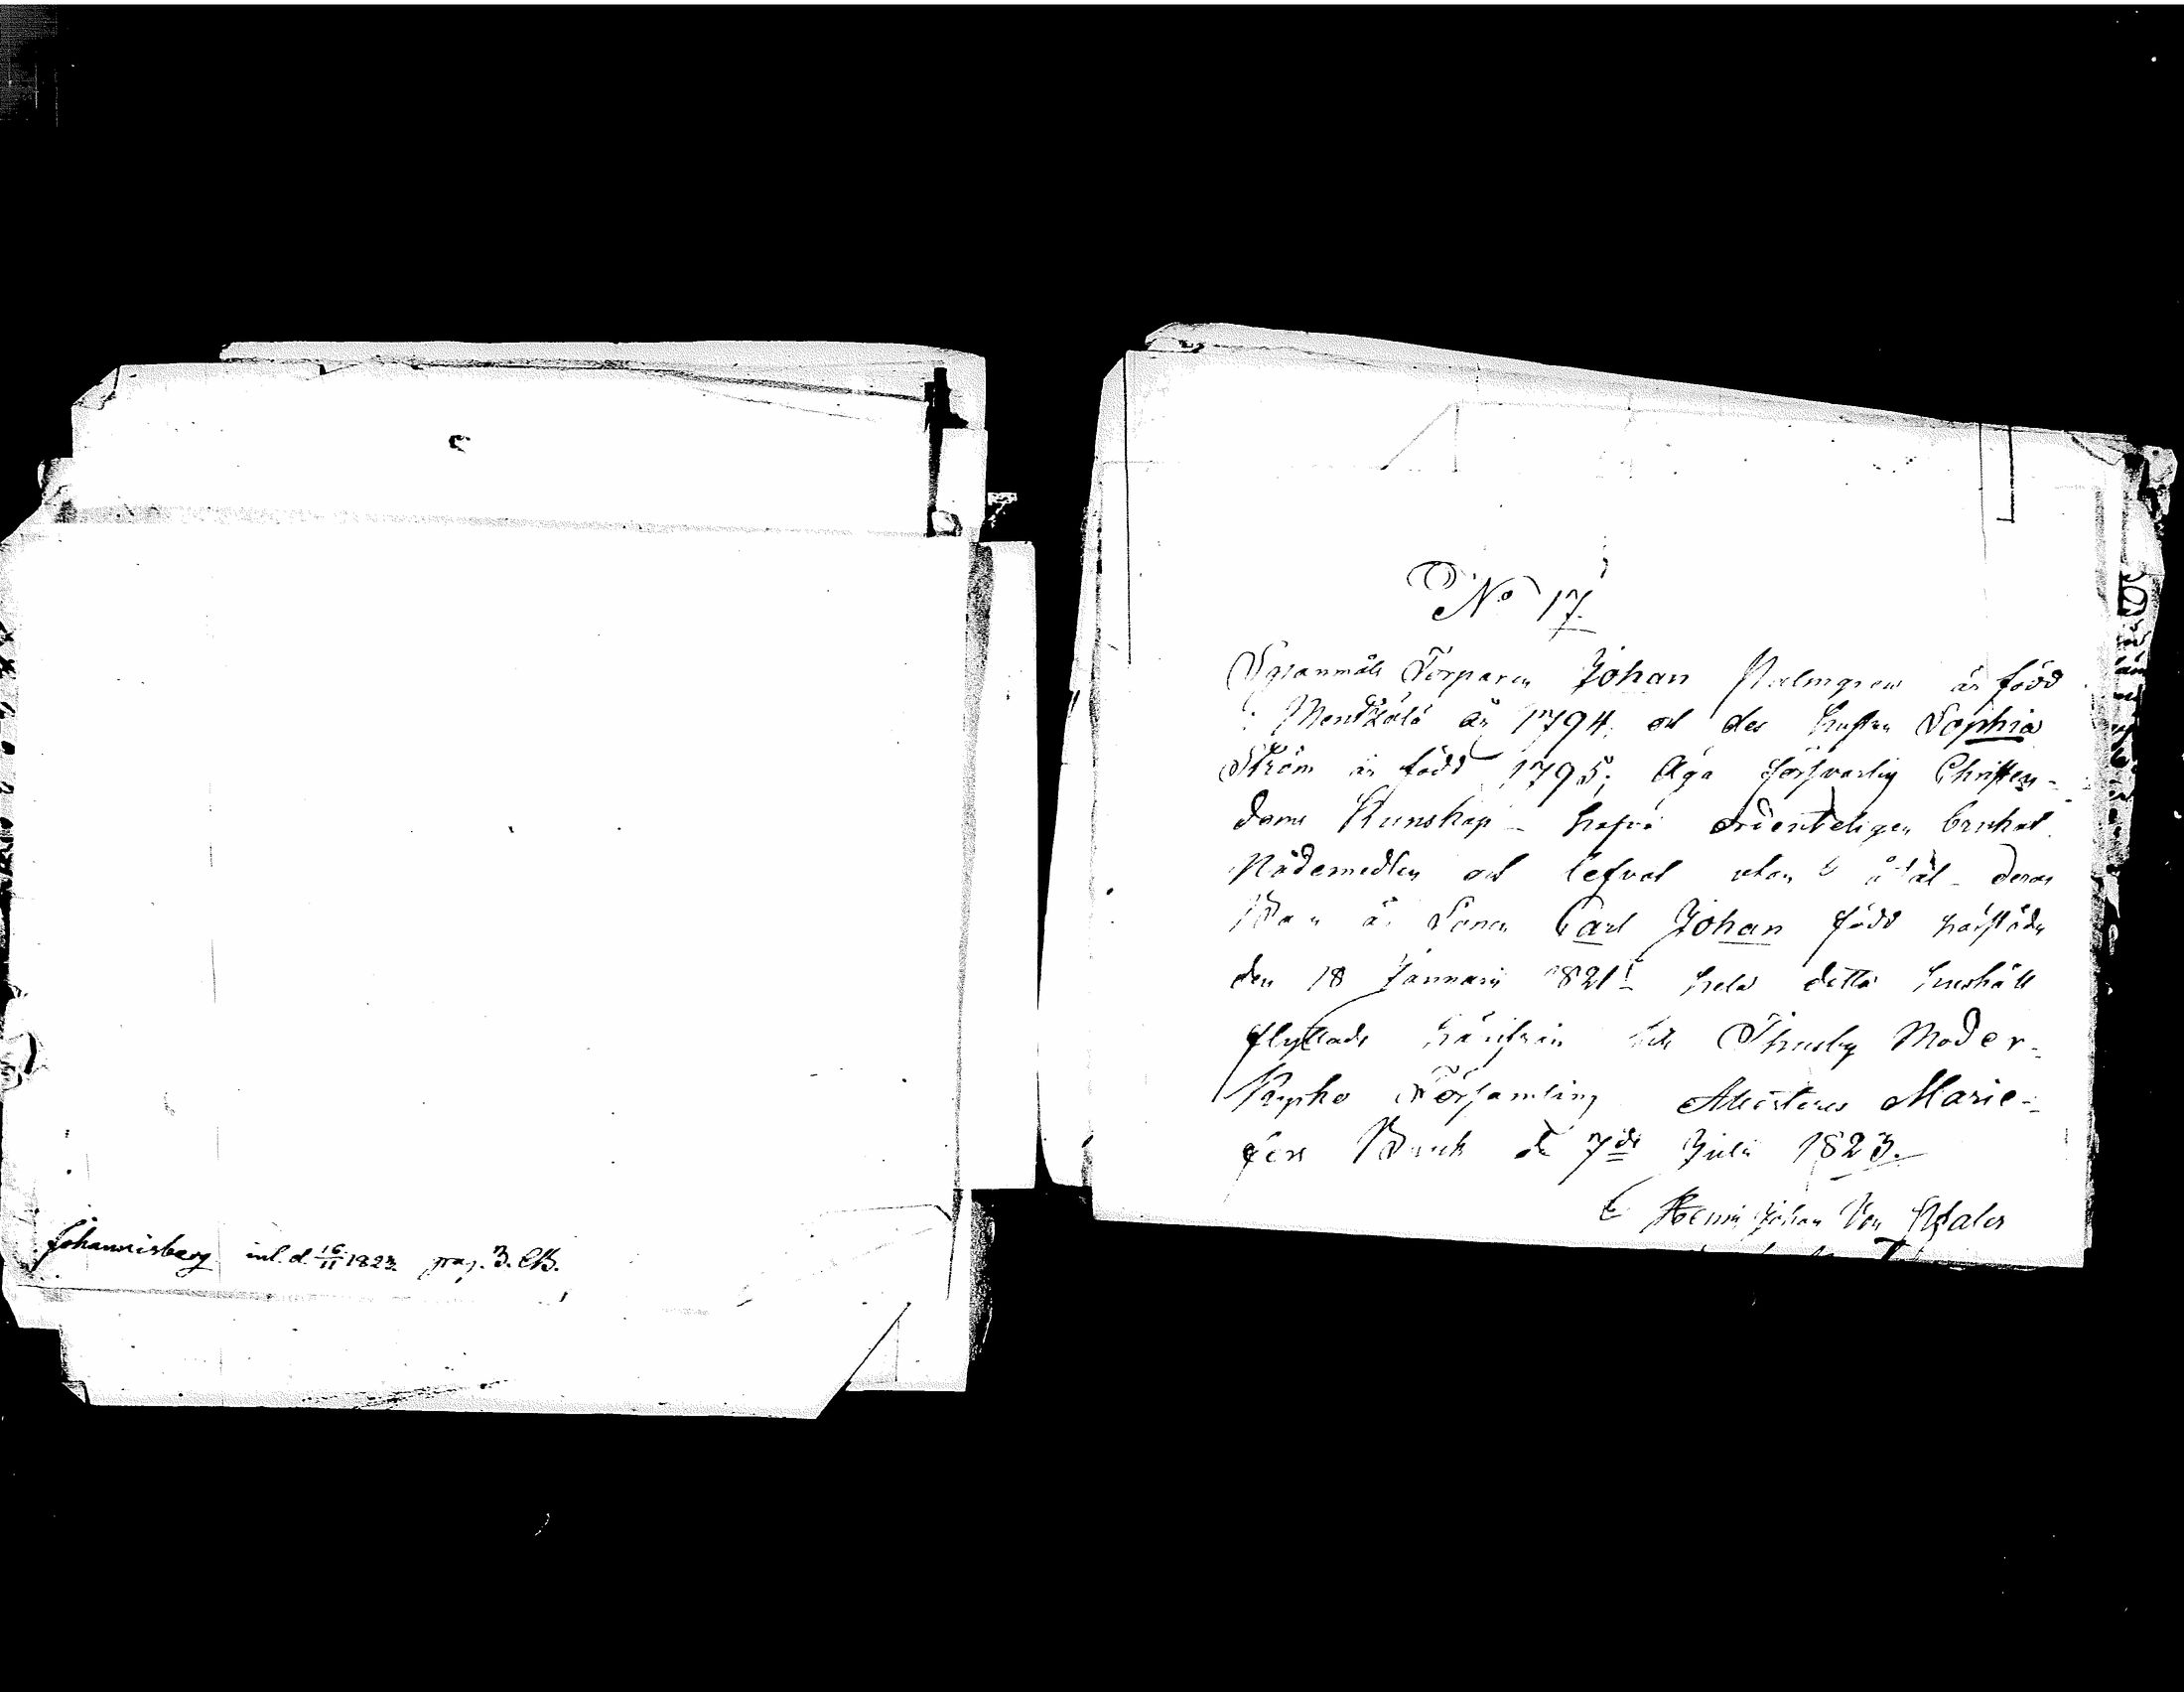 Johannisberg inl. d. 16/11 1823. pag. 3. CB.
No 17.
Torparen Johan Palmgren är född
i Mentzälä år 1794. och des hustru Sophia
Ström är född 1795; äga försvarlig Christen-
doms Kunskap - hafva ordenteligen brukat
Nådemedlen och lefvat utan åtal - deras
Barn är Sonen Carl Johan född härstädes
den 18 Januarii 1821 - hela detta hushåll
flyttade härifrån till Thusby Moder-
Kyrko Församling Attesteras Marie-
fors Bruk d 7de Julii 1823.
Henric Johan Von